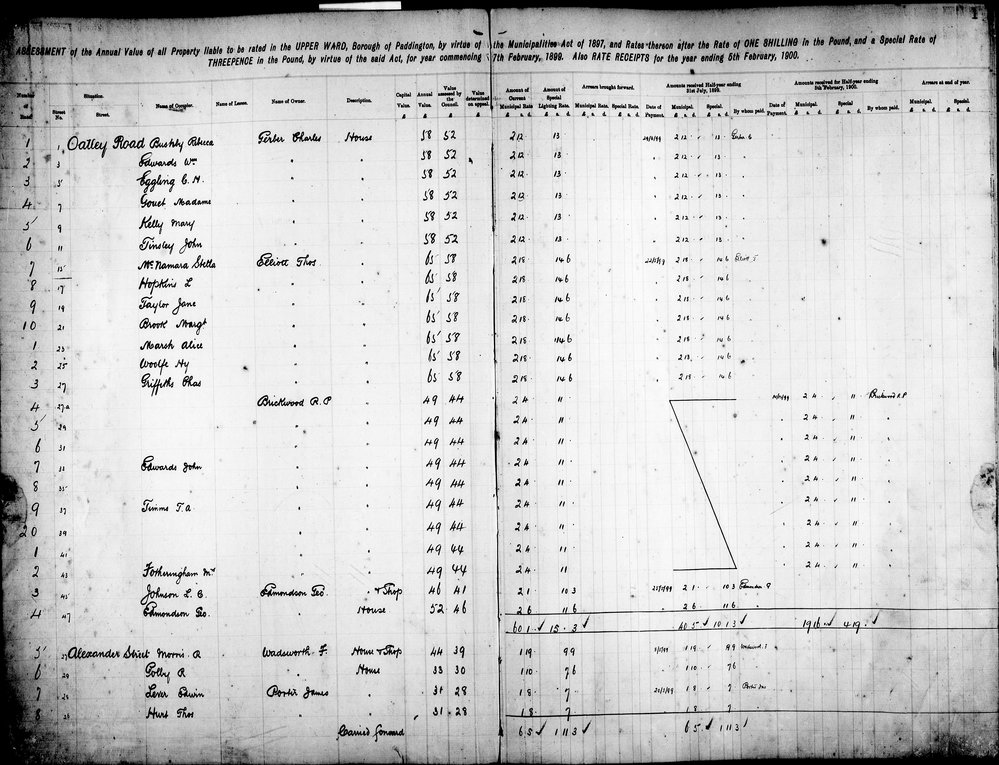 1
ASSESSMENT of the Annual Value of all Property liable to be rated in the UPPER WARD, Borough of Paddington, by virtue of the Municipalities Act of 1897, and Rates thereon after the Rate of ONE SHILLING in the Pound, and a Special Rate of
THREEPENCE in the Pound, by virtue of the said Act, for year commencing 7th February, 1899. Also RATE RECEIPTS for the year ending 5th February, 1900.
Number of Street No. Situation. Street. Name of Occupier. Name of Lessee. Name of Owner. Description. Capital Value. £ Annual Value. £ Value assessed by the Council. £ Value determined on appeal. £ Amount of Current Municipal Rate £ s. d. Amount of Special Lighting Rate. £ s. d. Arrears brought forward. Municipal Rate. Special Rate. £ s. d. Date of Payment. Amounts received Half-year ending 31st July, 1899. Municipal. £ s. d. Special. £ s. d. By whom paid. Date of Payment. Amounts received for Half-year ending 5th February, 1900. Municipal. £ s. d. Special £ s. d. By whom paid. Arrears at end of year. Municipal. £ s. d. Special. £ s. d.
1 1 Oatley Road Bushby Rebecca Gerber Charles House 58 52 2 12 13 2 12 13
2 3 Edwards Wm 58 52 2 12 13 2 12 13
3 5 Eggling C. H. 58 52 2 12 13 2 12 13
4 7 Gouet Madame 58 52 2 12 13 2 12 13
5 9 Kelly Mary 58 52 2 12 13 2 12 13
6 11 Tinsley John 58 52 2 12 13 2 12 13
7 15 McNamara Stella Elliott Thos 65 58 2 18 14 6 2 18 14 6 Elliott T
8 17 Hopkins L 65 58 2 18 14 6 2 18 14 6
9 19 Taylor Jane 65 58 2 18 14 6 2 18 14 6
10 21 Brook Margt 65 58 2 18 14 6 2 18 14 6
1 23 Marsh Alice 65 58 2 18 14 6 2 18 14 6
2 25 Woolfe Hy 65 58 2 18 14 6 2 18 14 6
3 27 Griffiths Chas 65 58 2 18 14 6 2 18 14 6
4 27a Brickwood R. P 49 44 2 4 11 2 4 11 Brickwood R. P
5 29 49 44 2 4 11 2 4 11
6 31 49 44 2 4 11 2 4 11
7 33 Edwards John 49 44 2 4 11 2 4 11
8 35 49 44 2 4 11 2 4 11
9 37 Timms T. A 49 44 2 4 11 2 4 11
20 39 49 44 2 4 11 2 4 11
1 41 49 44 2 4 11 2 4 11
2 43 Fotheringham Mrs 49 44 2 4 11 2 4 11
3 45 Johnson L. C. Edmondson Geo. & Shop 46 41 2 1 10 3 2 1 10 3 Edmondson G
4 47 Edmondson Geo. House 52 46 2 6 11 6 2 6 11 6
60 1 15 3 40 5 10 1 3 19 16 4 19
5 Alexander Street Morris R Wadsworth F. House & Shop 44 39 1 19 9 9 1 19 9 9
6 Polby R House 33 30 1 10 7 6 1 10 7 6
7 Lever Edwin Porter James 31 28 1 8 7 1 8 7 Porter Jas
8 Hurt Thos 31 28 1 8 7 1 8 7
Carried forward 6 5 1 11 3 6 5 1 11 3